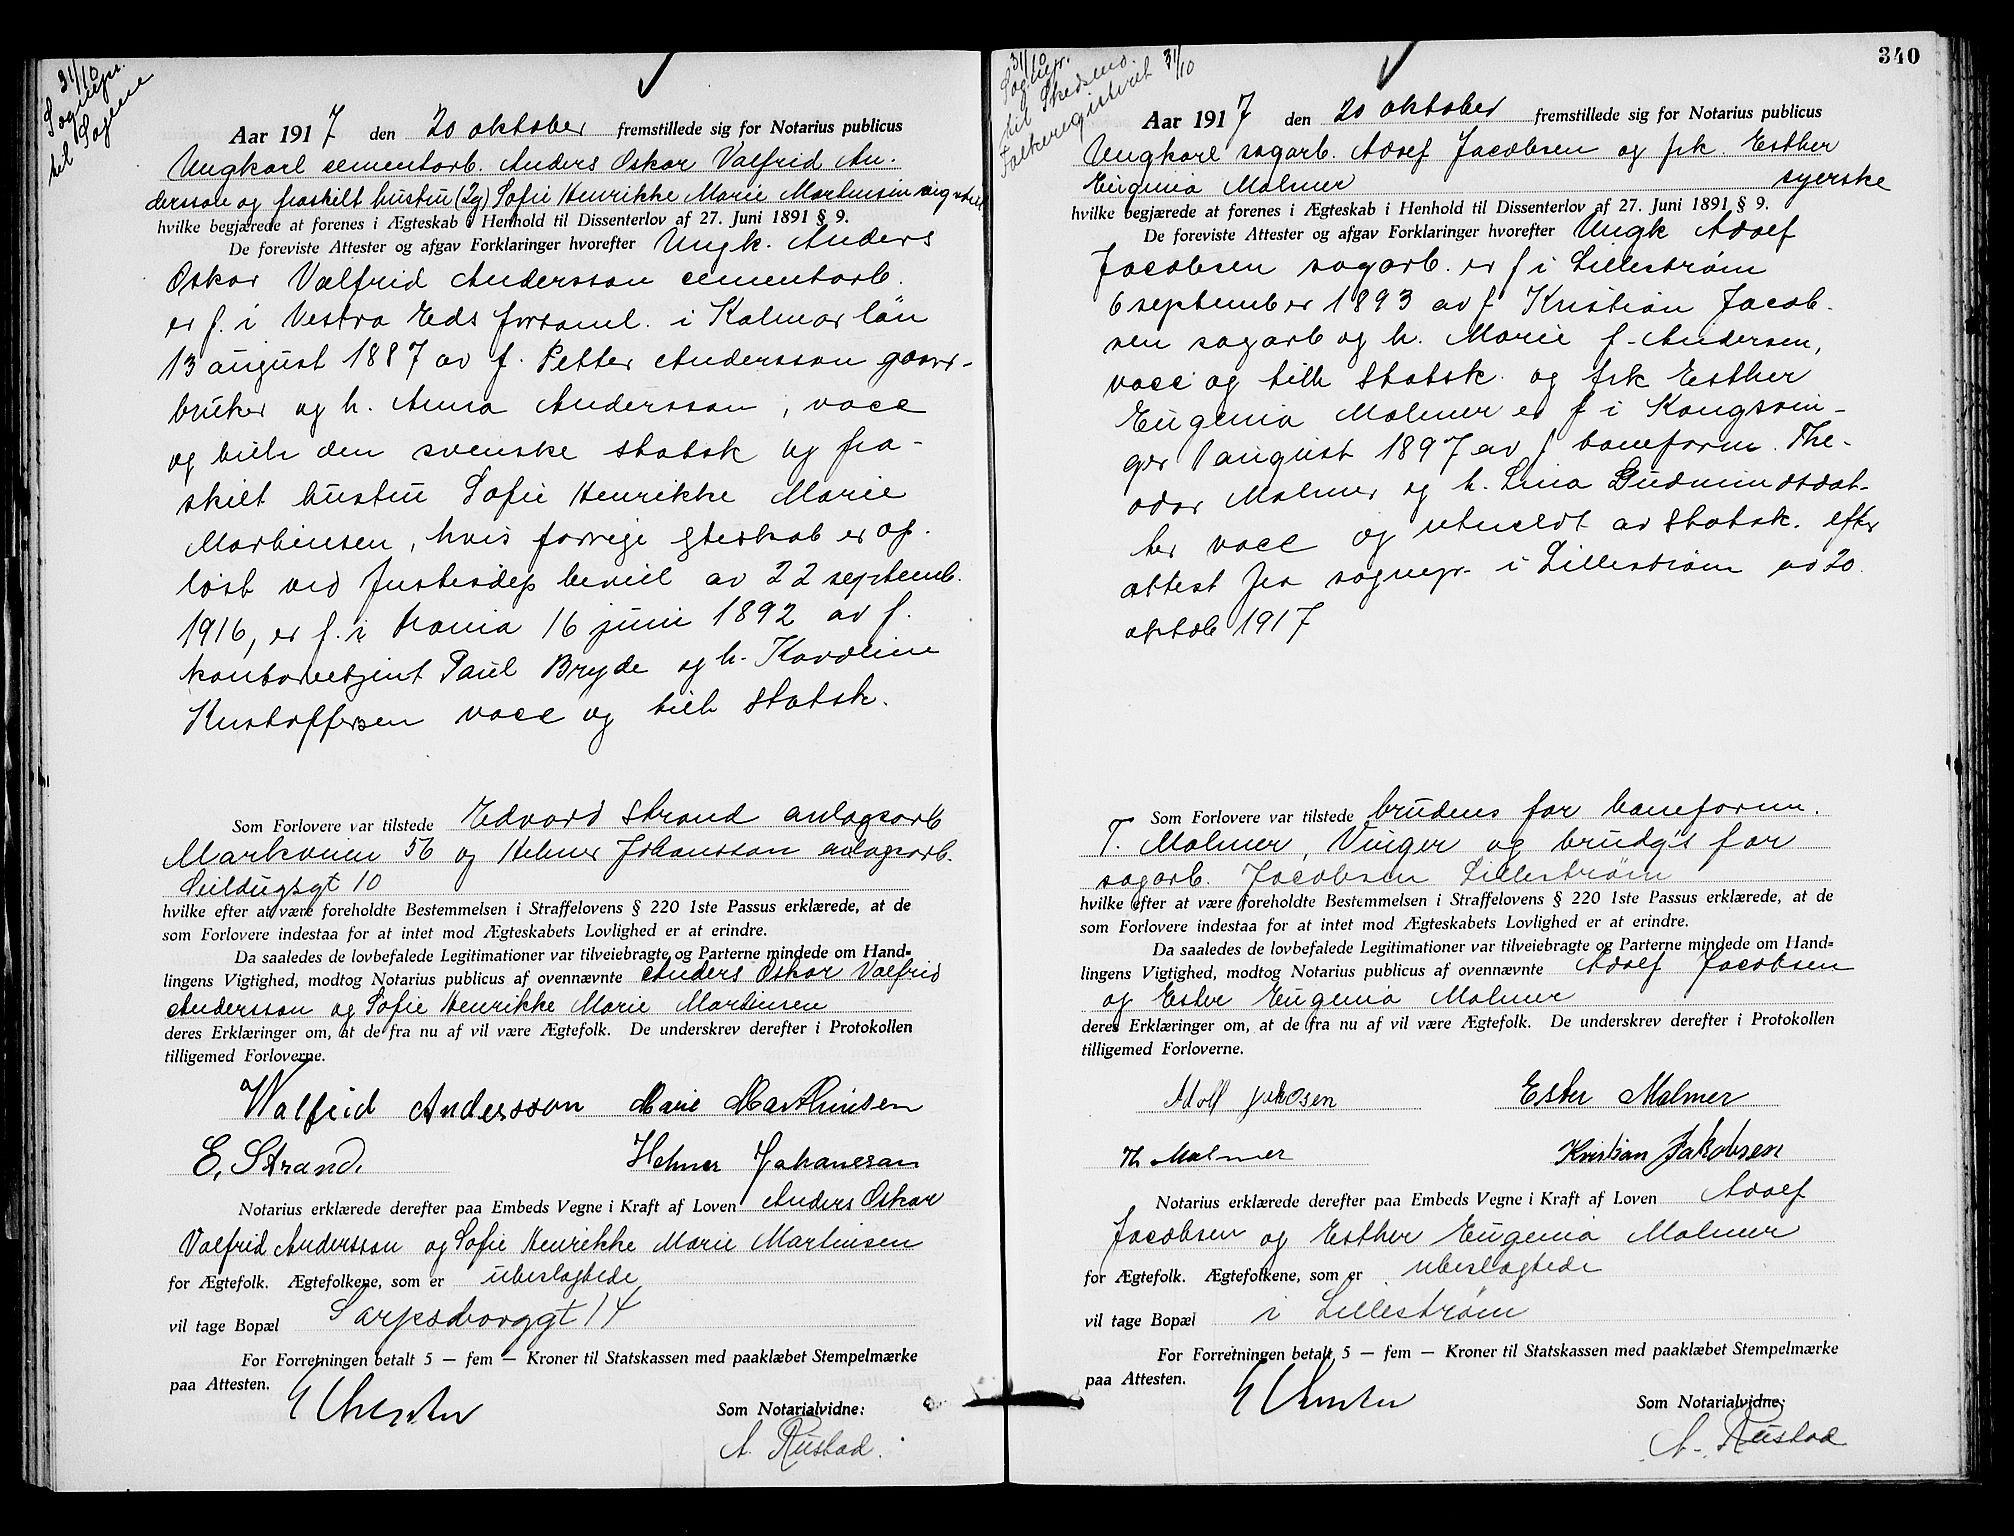 31/10
Sognepr.
til Sagene
Aar 1917 den 20 oktober fremstillede sig for Notarius publicus
Ungkarl cementarb. Anders Oskar Valfrid An-
dersson og fraskilt hustru (2g) Sofie Henrikke Marie Martinsen
hvilke begjærede at forenes i Ægteskab i Henhold til Dissenterlov af 27. Juni 1891 § 9.
De foreviste Attester og afgav Forklaringer hvorefter Ungk. Anders
Oskar Valfrid Andersson cementarb.
er f. i Vestra Eds forsaml. i Kalmar län
13 august 1887 av f. Petter Andersson gaard-
bruker og h. Anna Andersson, vacc
og tilh den svenske statsk og fra-
skilt hustru Sofie Henrikke Marie
Martinsen, hvis forrige egteskab er op-
løst ved Justisdep bevill av 22 septemb.
1916, er f. i Krania 16 juni 1892 av f.
kontorbetjent Paul Bryde og h. Karoline
Kristoffersen vacc og tilh statsk.
Som Forlovere var tilstede Edvard Strand anlægsarb
Markveien 56 og Helmer Johansson anlægsarb.
Seildugsgt 10
hvilke efter at være foreholdte Bestemmelsen i Straffelovens § 220 1ste Passus erklærede, at de
som Forlovere indestaa for at intet mod Ægteskabets Lovlighed er at erindre.
Da saaledes de lovbefalede Legitimationer var tilveiebragte og Parterne mindede om Hand-
lingens Vigtighed, modtog Notarius publicus af ovennævnte Anders Oskar Valfrid
Andersson og Sofie Henrikke Marie Martinsen
deres Erklæringer om, at de fra nu af vil være Ægtefolk. De underskrev derefter i Protokollen
tilligemed Forloverne.
Walfrid Andersson Marie Marthinsen
E. Strand. Helmer Johansson
Notarius erklærede derefter paa Embeds Vegne i Kraft af Loven Anders Oskar
Valfrid Andersson og Sofie Henrikke Marie Martinsen
for Ægtefolk. Ægtefolkene, som er ubeslægtede
vil tage Bopæl Sarpsborggt 14
For Forretningen betalt 5 — fem — Kroner til Statskassen med paaklæbet Stempelmærke
paa Attesten.
Som Notarialvidne:
A. Rustad.
340
31/10
Sognepr.
til Skedsmo.
Folkeregistret 31/10
Aar 1917 den 20 oktober fremstillede sig for Notarius publicus
Ungkarl sagarb. Adolf Jacobsen og frk. Esther
Eugenia Malmer syerske
hvilke begjærede at forenes i Ægteskab i Henhold til Dissenterlov af 27. Juni 1891 § 9.
De foreviste Attester og afgav Forklaringer hvorefter Ungk Adolf
Jacobsen sagarb. er f i Lillestrøm
6 september 1893 av f Kristian Jacob-
sen sagarb og h. Marie f. Andersen,
vacc og tilh statsk. og frk Esther
Eugenia Malmer er f i Kongsvin-
ger 1 august 1897 av f baneform. The-
odor Malmer og h. Lina Gudmundsdat-
ter vacc og utmeldt av statsk. efter
attest fra sognepr. i Lillestrøm av 20
oktob 1917
Som Forlovere var tilstede brudens far baneform.
T. Malmer, Vinger og brudg's far
sagarb. Jacobsen Lillestrøm
hvilke efter at være foreholdte Bestemmelsen i Straffelovens § 220 1ste Passus erklærede, at de
som Forlovere indestaa for at intet mod Ægteskabets Lovlighed er at erindre.
Da saaledes de lovbefalede Legitimationer var tilveiebragte og Parterne mindede om Hand-
lingens Vigtighed, modtog Notarius publicus af ovennævnte Adolf Jacobsen
og Ester Eugenia Malmer
deres Erklæringer om, at de fra nu af vil være Ægtefolk. De underskrev derefter i Protokollen
tilligemed Forloverne.
Adolf Jakobsen Ester Malmer
Th Malmer Kristian Jakobsen
Notarius erklærede derefter paa Embeds Vegne i Kraft af Loven Adolf
Jacobsen og Esther Eugenia Malmer
for Ægtefolk. Ægtefolkene, som er ubeslægtede
vil tage Bopæl i Lillestrøm
For Forretningen betalt 5 — fem — Kroner til Statskassen med paaklæbet Stempelmærke
paa Attesten.
Som Notarialvidne:
A. Rustad